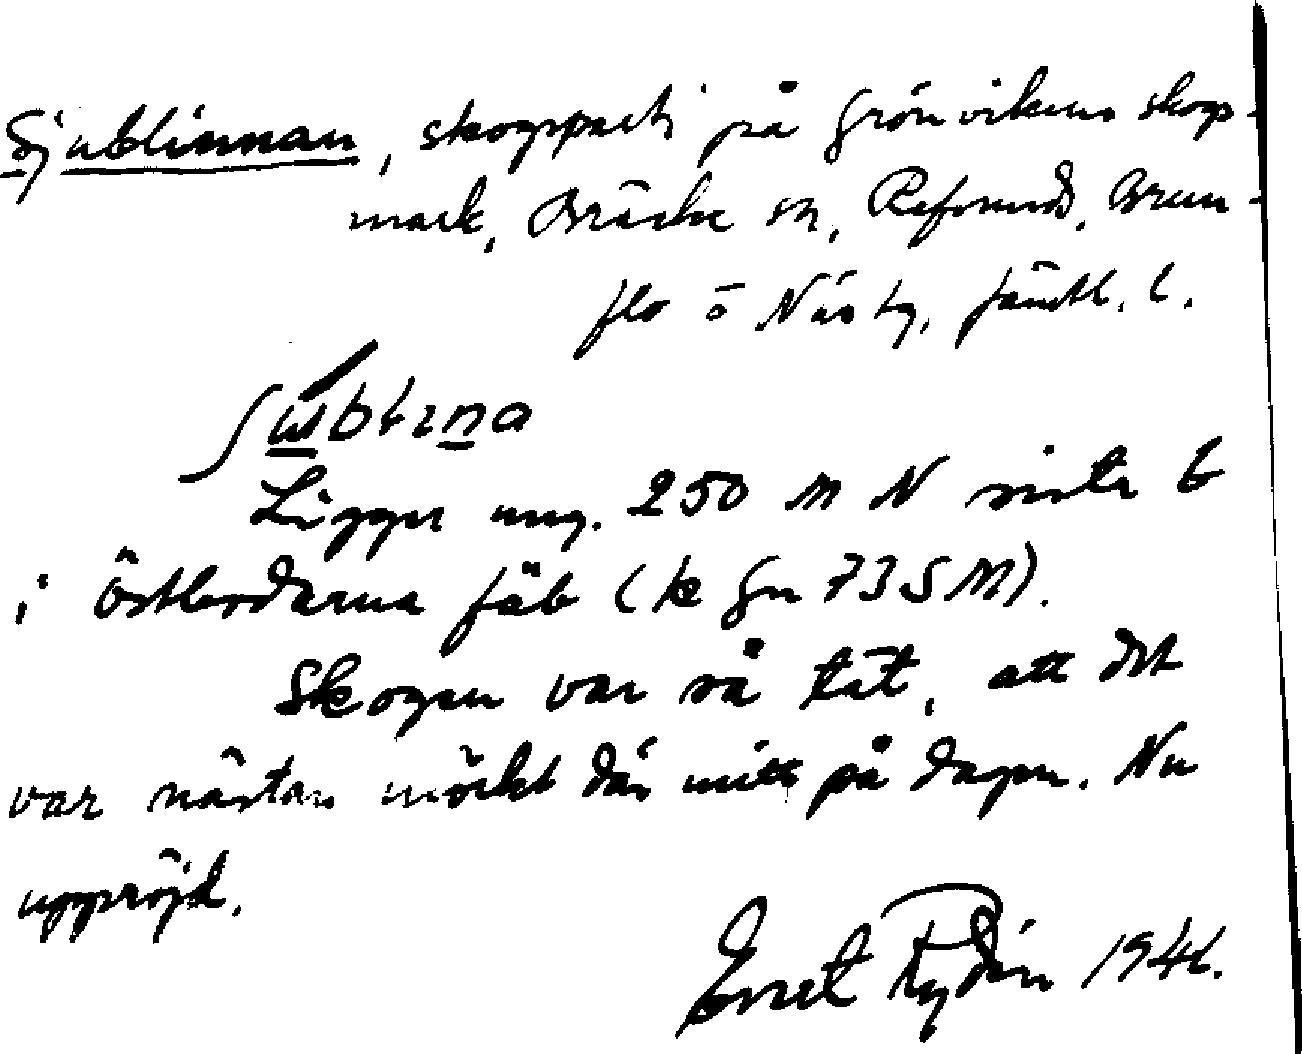 Sjublinnan, skogsparti på Grönvikens skogs-
mark, Bräcke sn, Refsunds, Brun-
flo o Näs tg, Jämtl. l.
Ligger ung. 250 m N sista b
i Östbodarna fäb (k gn 735 M).
Skogen var så tät, att det
var nästan mörkt där mitt på dagen. Nu
uppröjd.
Ernst Rydén 1946.